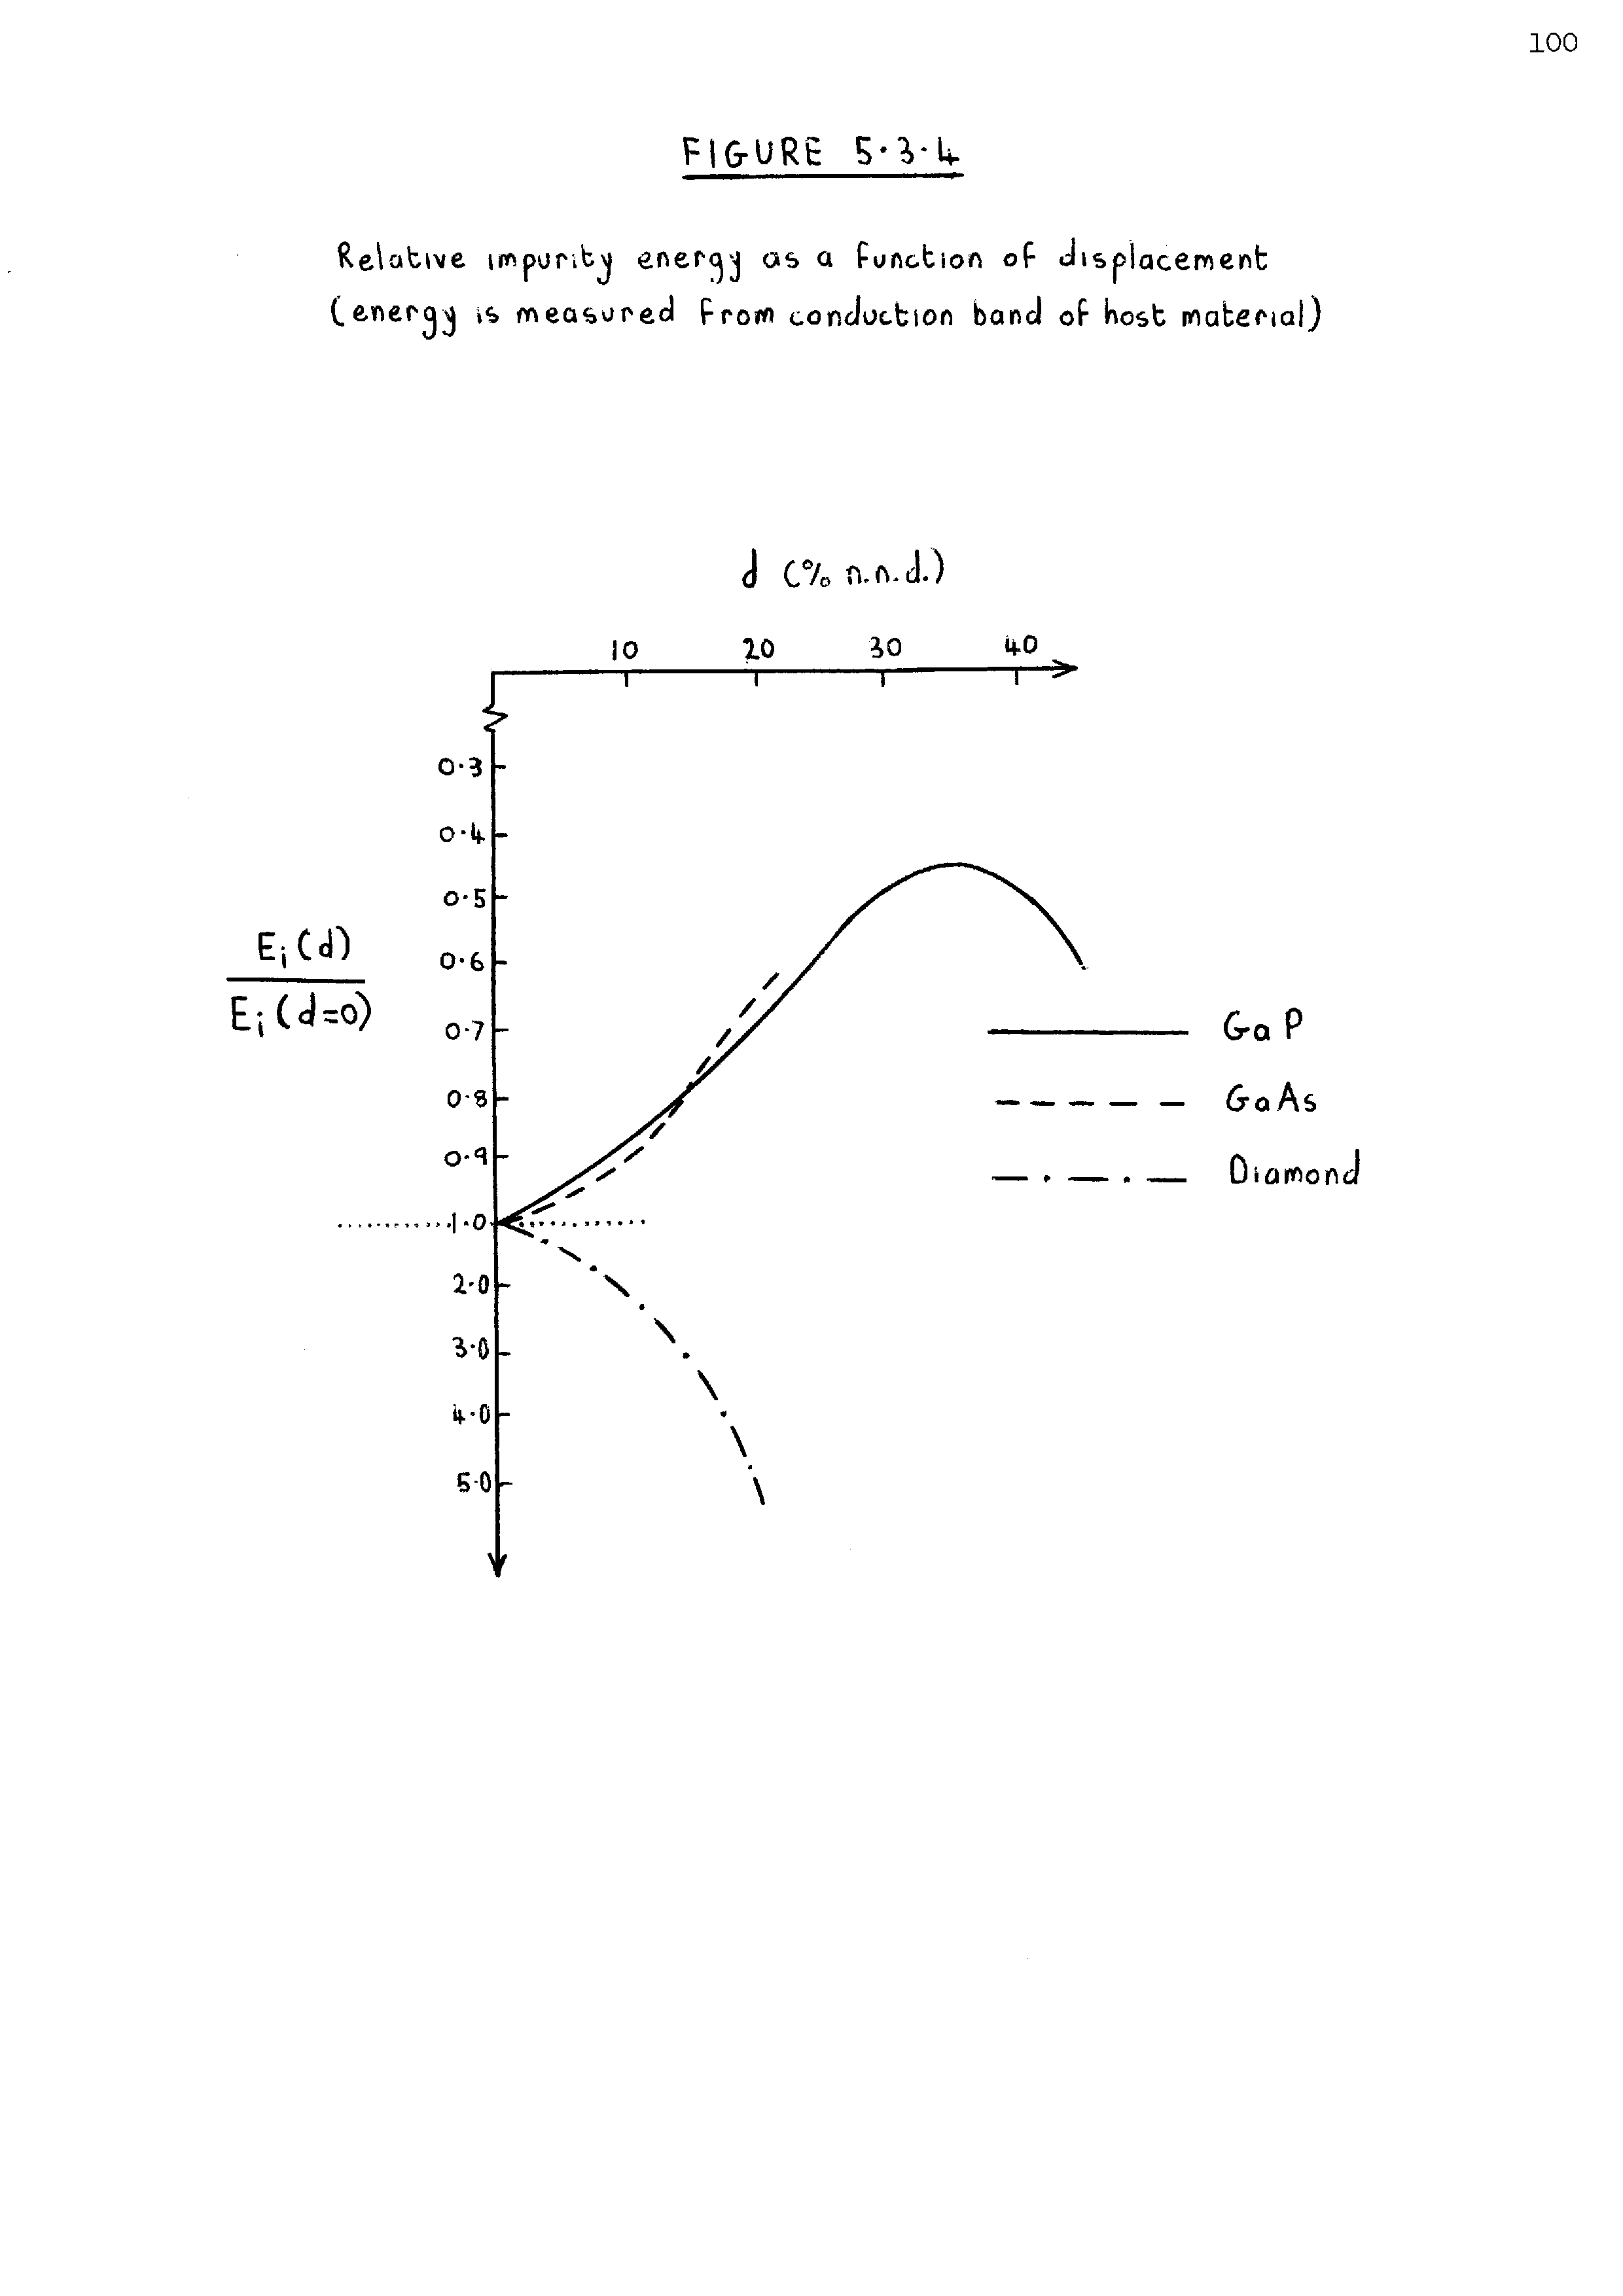 100
FIGURE 5.3.4
Relative impurity energy as a function of displacement
(energy is measured from conduction band of host material)
d (% n.n.d.)
10 20 30 40
0.3
0.4
0.5
0.6
0.7
0.8
0.9
1.0
2.0
3.0
4.0
5.0
Ei(d)
Ei(d=0)
GaP
GaAs
Diamond